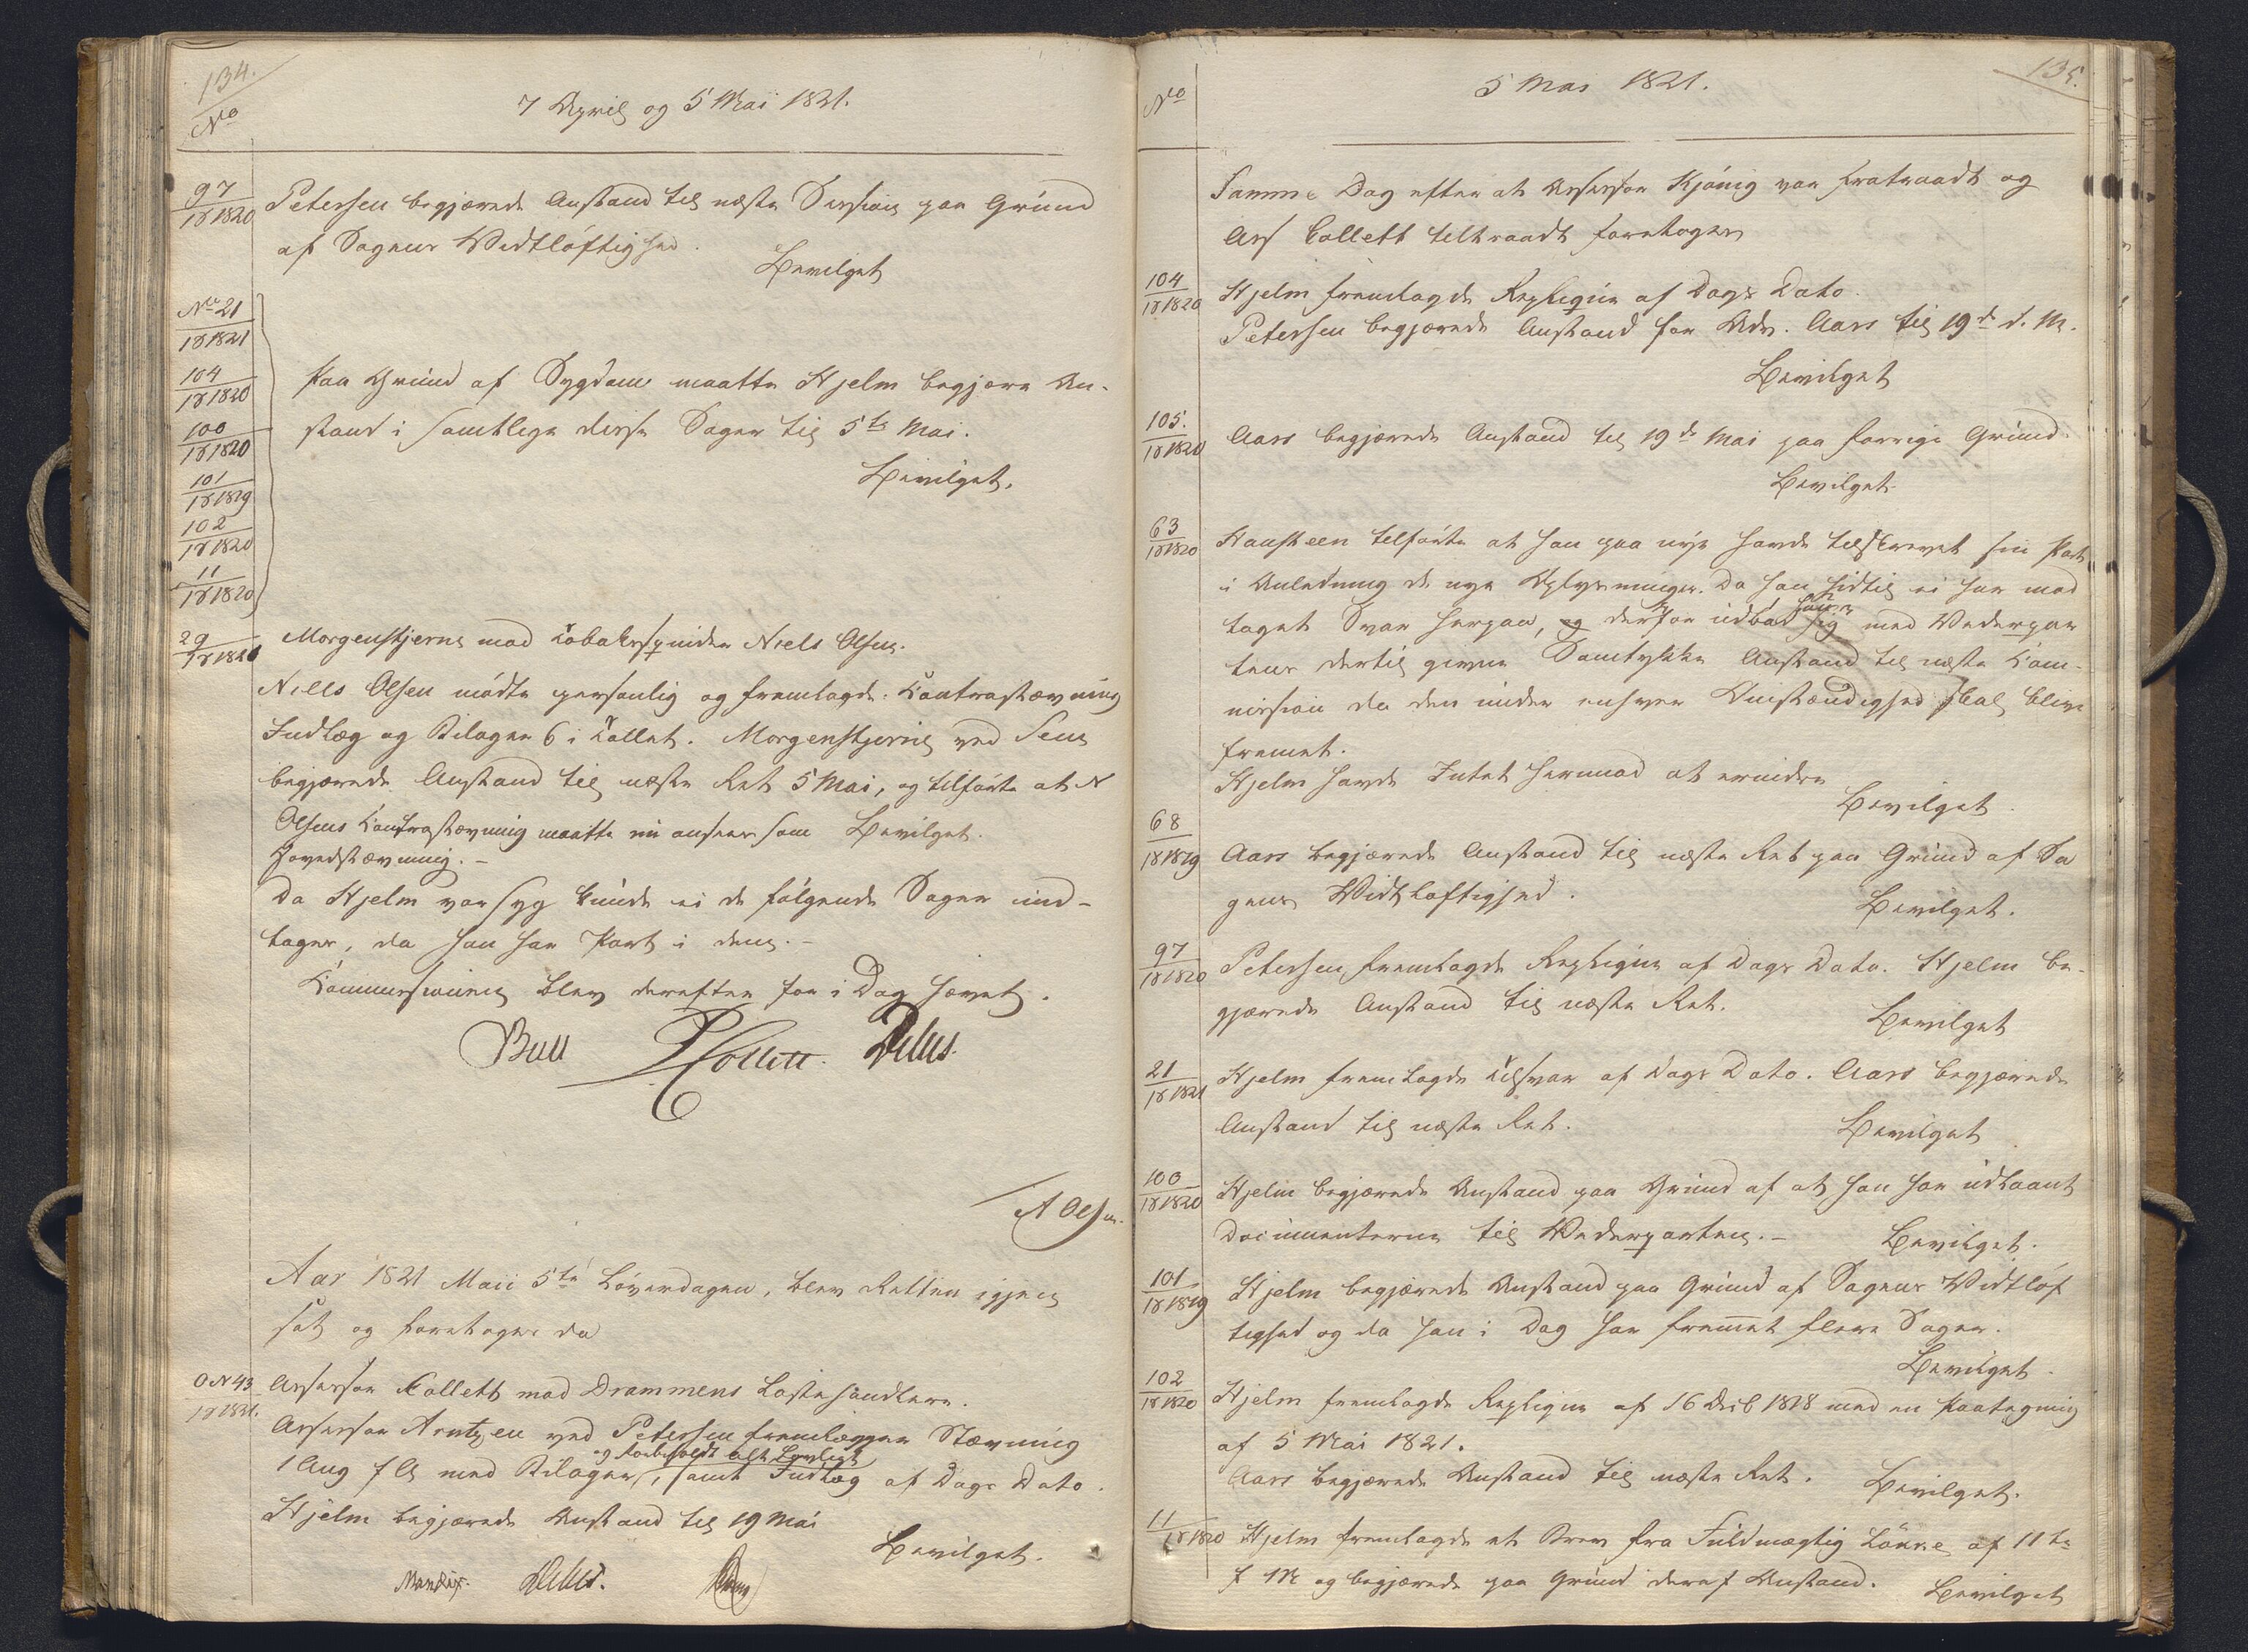 134.
No
7 April og 5 Mai 1821.
97
18 1820
Petersen begjærede Anstand til næste Session paa Grund
af Sagens Vidtløftighed.
Bevilget
No 21
18 1821
104
18 1820
100
18 1820
101
18 1819
102
18 1820
11
18 1820
Paa Grund af Sygdom maatte Hjelm begjære An-
stand i samtlige disse Sager til 5te Mai.
Bevilget.
29
18 1821
Morgenstjerne mod Tobakspinder Niels Olsen.
Niels Olsen mødte personlig og fremlagde Contrastævning
Indlæg og Bilager 6 i Tallet. Morgenstjerne ved Sem
begjærede Anstand til næste Ret 5 Mai, og tilførte at N
Olsens Contrastævning maatte ei ansees som Bevilget.
Hovedstævning.-
Da Hjelm var syg kunde ei de følgende Sager ind-
tages, da han har Part i dem.-
Commissionen blev derefter for i Dag hævet.
Bull PCollett. Delus.
A Olsen.
Aar 1821 Maii 5te Løverdagen, blev Retten igjen
sat og foretoges da
O N 43
18 1821.
Assessor Collett mod Drammens Lastehandlere.
Assessor Arntzen ved Petersen fremlægger Stævning
og forbeholdt alt Lovligt
1 Aug f A med Bilager, samt Indlæg af Dags Dato.
Hjelm begjærede Anstand til 19 Mai
Bevilget.
Mandix. Delus.
135.
No
5 Mai 1821.
Samme Dag efter at Assessor Kjønig var fratraadt og
Ass Collett tiltraadt foretoges
104
18 1820
Hjelm fremlagde Repliqve af Dags Dato.
Petersen begjærede Anstand for Adv. Aars til 19de d. M.
Bevilget
105.
18 1820
Aars begjærede Anstand til 19de Mai paa forrige Grund.
Bevilget
63
18 1820
Hansteen tilførte at han paa nye havde tilskrevet sin Part
i Anledning de nye Oplysninger. Da han hidtil ei har mod
taget Svar herpaa, og derfor udbad han sig med Vederpar
tens dertil givne Samtykke Anstand til næste Com-
mission da den under enhver Omstændighed skal blive
fremmet.
Hjelm havde Intet herimod at erindre
Bevilget.
68
18 1819
Aars begjærede Anstand til næste Ret paa Grund af Sa
gens Vidtløftighed.
Bevilget.
97
18 1820
Petersen fremlagde Repliqve af Dags Dato. Hjelm be-
gjærede Anstand til næste Ret.
Bevilget
21
18 1821
Hjelm fremlagde Tilsvar af Dags Dato. Aars begjærede
Anstand til næste Ret.
Bevilget
100
18 1820
Hjelm begjærede Anstand paa Grund af at han har udlaant
Documenterne til Vederparten.-
Bevilget.
101
18 1819
Hjelm begjærede Anstand paa Grund af Sagens Vidtløf
tighed og da han i Dag har fremmet flere Sager.
Bevilget.
102
18 1820
Hjelm fremlagde Repliqve af 16 Decb 1818 med en Paategning
af 5 Mai 1821.
Aars begjærede Anstand til næste Ret.
Bevilget.
11
18 1820
Hjelm fremlagde et Brev fra Fuldmægtig Lønne af 11te
f M og begjærede paa Grund deraf Anstand.
Bevilget